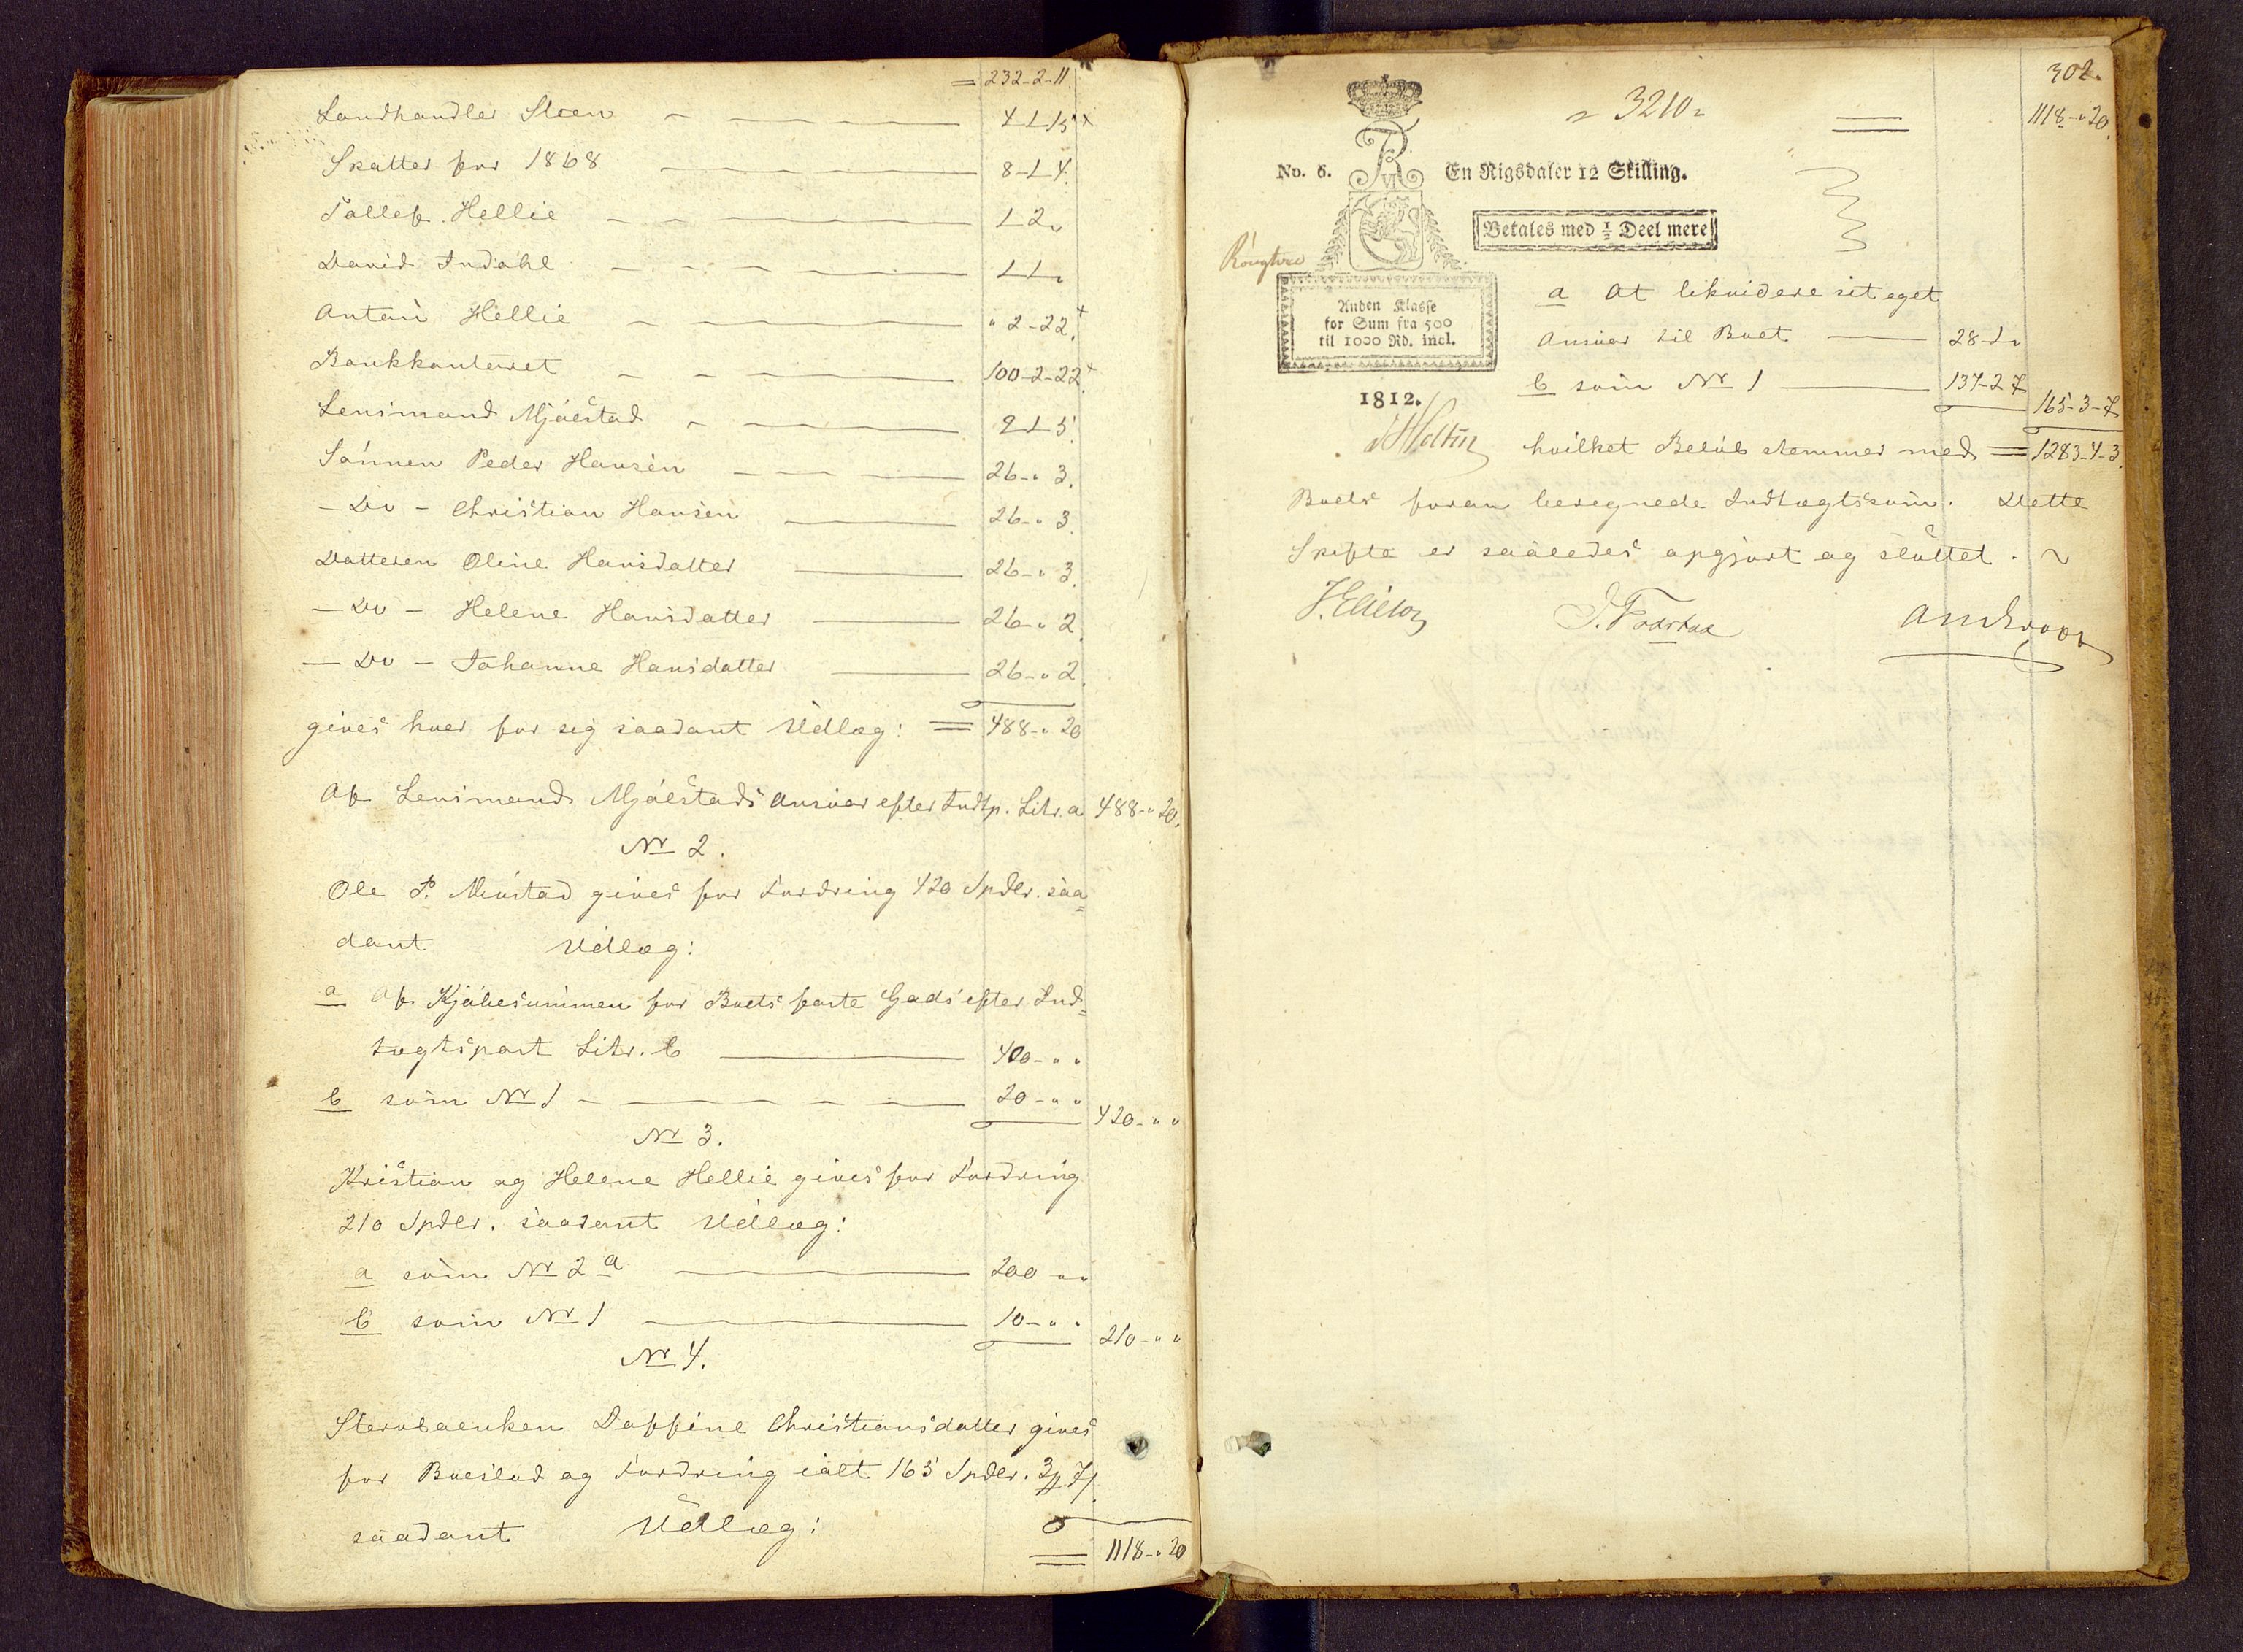 = 232-2-11.
Landhandler Steen — 4-1-15 x
Skatter for 1868 — 8-1-4.
Tallef Hellie — 1-2"
David Indahl — 1-1"
Anton Hellie — " 2-22. x
Bankkontoret — 100-2-22. x
Lensmand Mjölstad — 9-1-5.
Sønnen Peder Hansen — 26-" 3.
— Do — Christian Hansen — 26-" 3
Datteren Oline Hansdatter — 26-" 3.
— Do — Helene Hansdatter — 26-" 2.
— Do — Johanne Hansdatter — 26-" 2.
gives hver for sig saadant Udlæg: = 488-" 20
Af Lensmand Mjölstads Ansvar efter Indtp. Litr. a 488-" 20.
No 2.
Ole P. Mustad gives for Fordring 420 Spdlr. saa=
dant Udlæg:
a Af Kjøbesummen for Boets faste Gods efter Ind=
tægtspost Litr. b — 400-" "
b som No 1 — 20-" " 420-" "
No 3.
Kristian og Helene Hellie gives for Fordring
210 Spdlr. saadant Udlæg:
a som No 2 a — 200-" "
b som No 1 — 10-" " 210-" "
No 4.
Stervboenken Daffine Christiansdatter gives
for Boeslod og Fordring ialt 165 Spdlr. 3 7
saadant Udlæg:
= 1118-" 20
302.
3210
= 1118-" 20.
No. 6. R VI En Rigsdaler 12 Skilling.
Betales med 1/2 Deel mere
Anden Klasse
for Sum fra 500
til 1000 Rd. incl.
1812.
a At likvidere sit eget
Ansvar til Boet — 28-1"
b som No 1 — 137-2 7
165-3-7
hvilket Beløb stemmer med = 1283-4-3.
Boets foran beregnede Indtægtssum. Dette
Skifte er saaledes opgjort og sluttet.